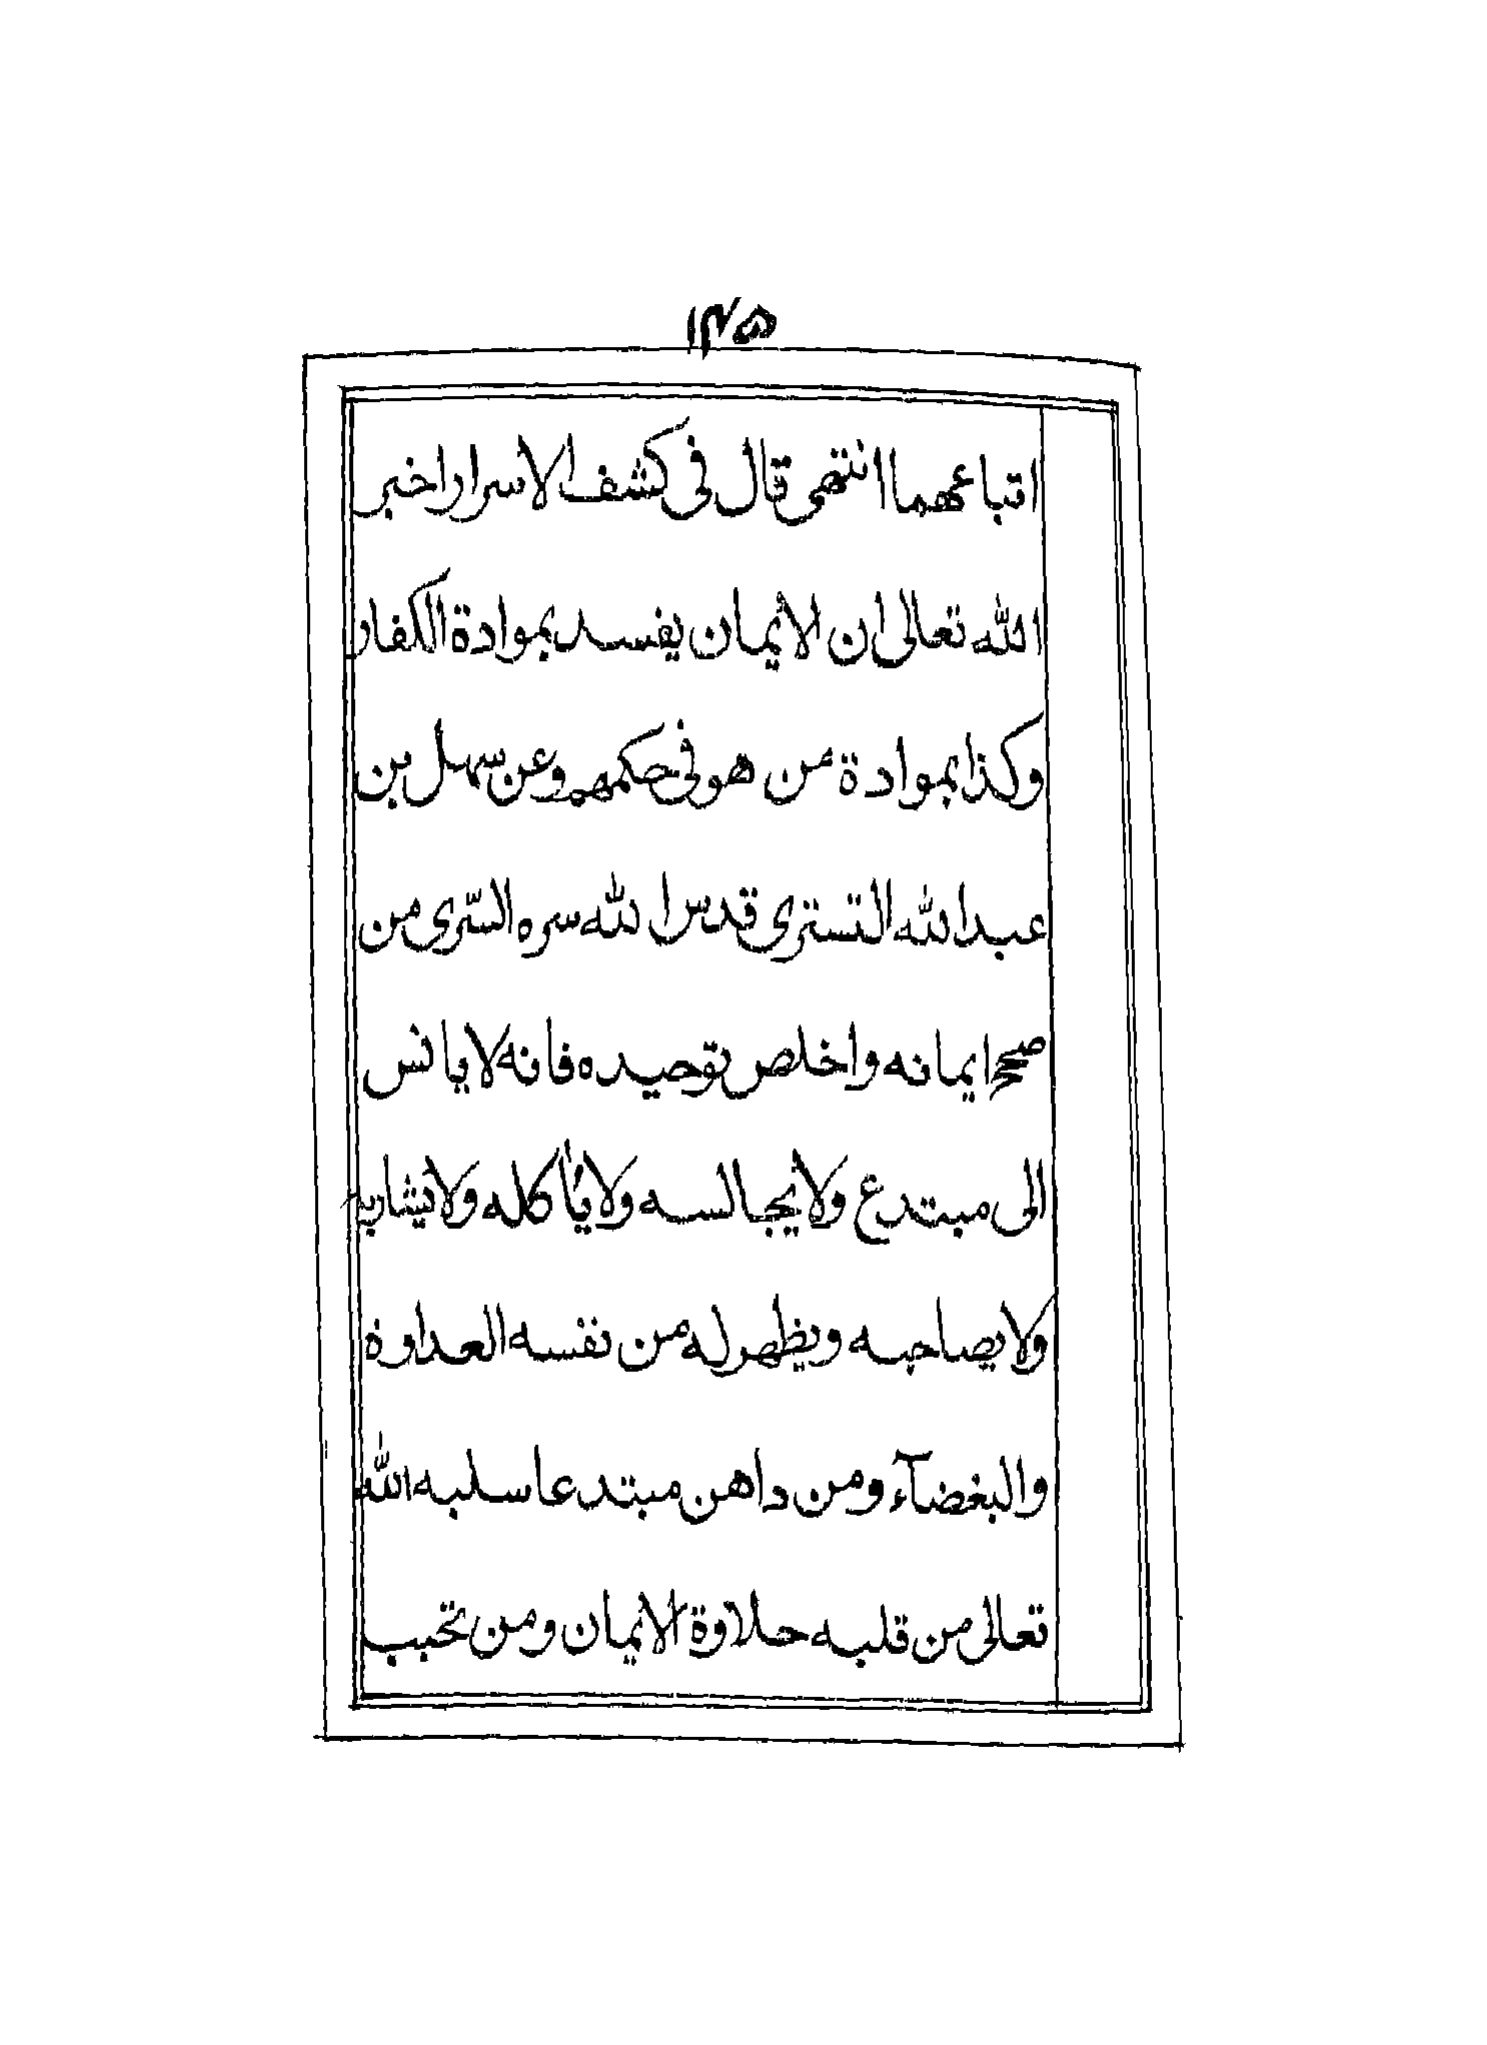 ۱۴۵
اتباعهما انتهى قال فى كشف الاسرار اخبر
الله تعالى ان الايمان يفسد بموادة الكفار
وكذا بموادة من هو فى حكمهم وعن سهل بن
عبد الله التسترى قدس الله سره السّرى من
صحح ايمانه واخلص توحيده فانه لا يانس
الى مبتدع ولا يجالسه ولا يأكله ولا يشاربه
ولا يصاحبه ويظهر له من نفسه العداوة
والبغضآء ومن داهن مبتدعا سلبه الله
تعالى من قلبه حلاوة الايمان ومن تحبب